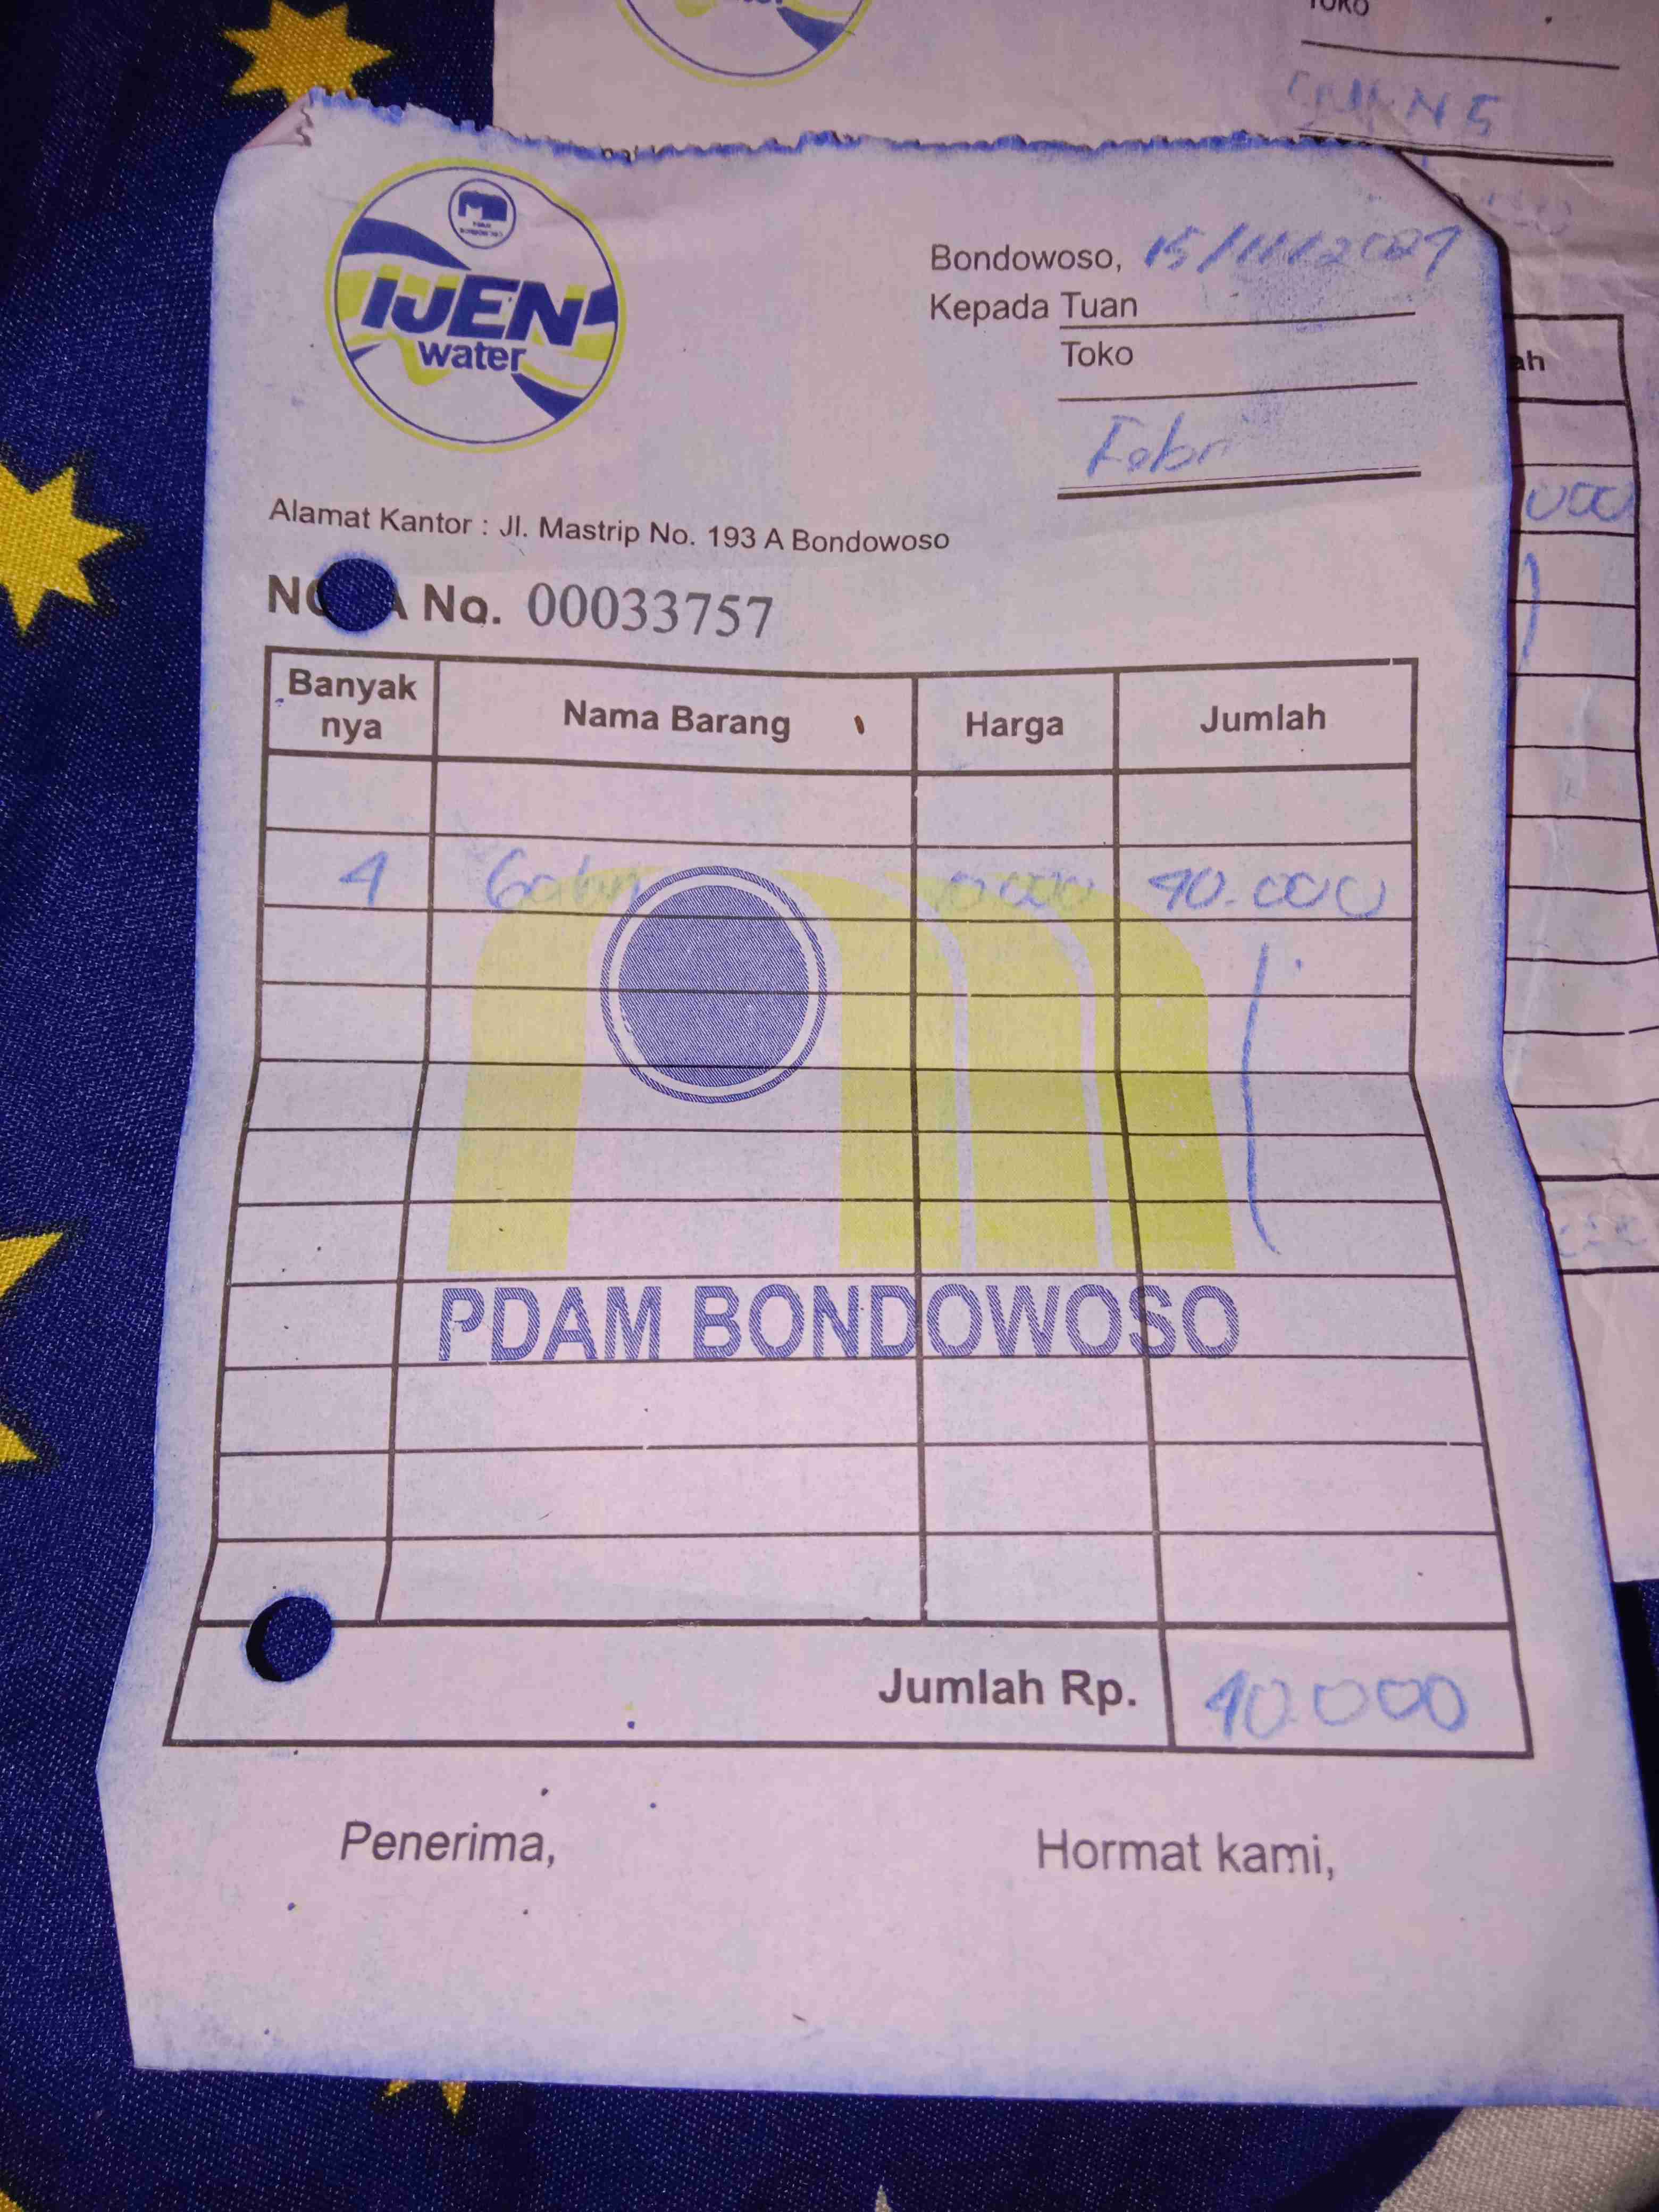 TOKO
IJEN
water
Bondowoso, 15/11/2021
Kepada Tuan
Toko
Febri
Alamat Kantor : Jl. Mastrip No. 193 A Bondowoso
No. 00033757
Banyak nya Nama Barang Harga Jumlah
ah
4 Galon 10.000 40.000
000
PDAM BONDOWOSO
Jumlah Rp. 40.000
Penerima, Hormat kami,